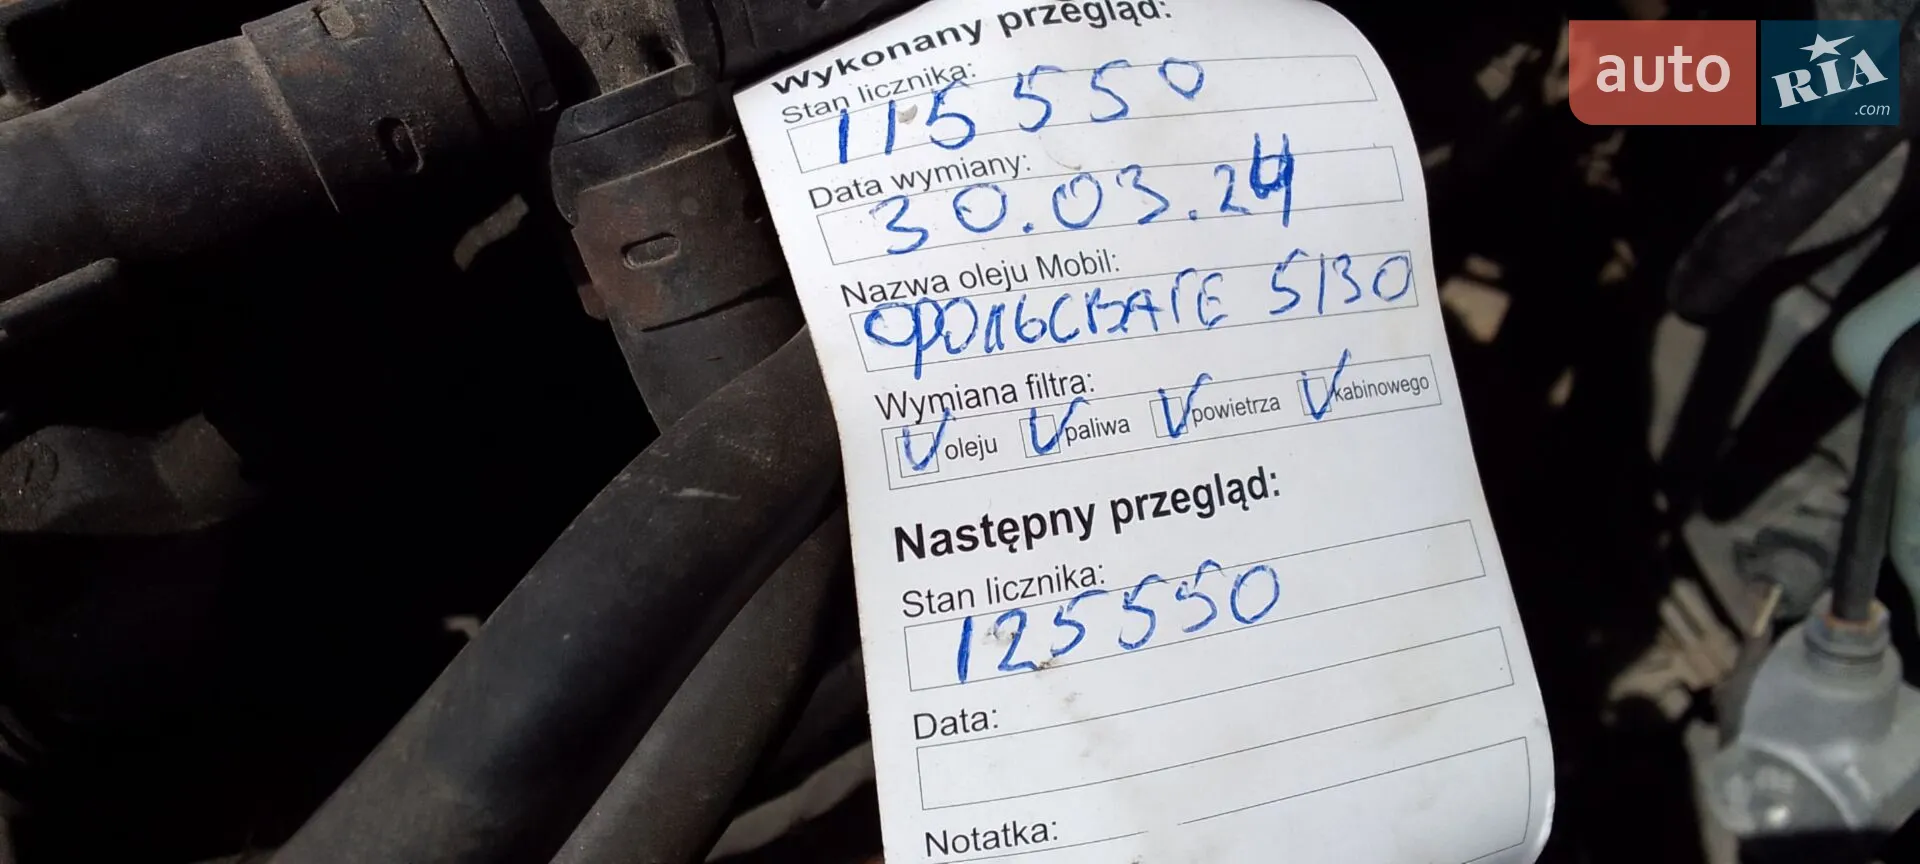 auto RIA .com
Wykonany przegląd:
Stan licznika:
115 550
Data wymiany:
30.03.24
Nazwa oleju Mobil:
5/30
Wymiana filtra:
V oleju V paliwa V powietrza V kabinowego
Następny przegląd:
Stan licznika:
125550
Data:
Notatka: